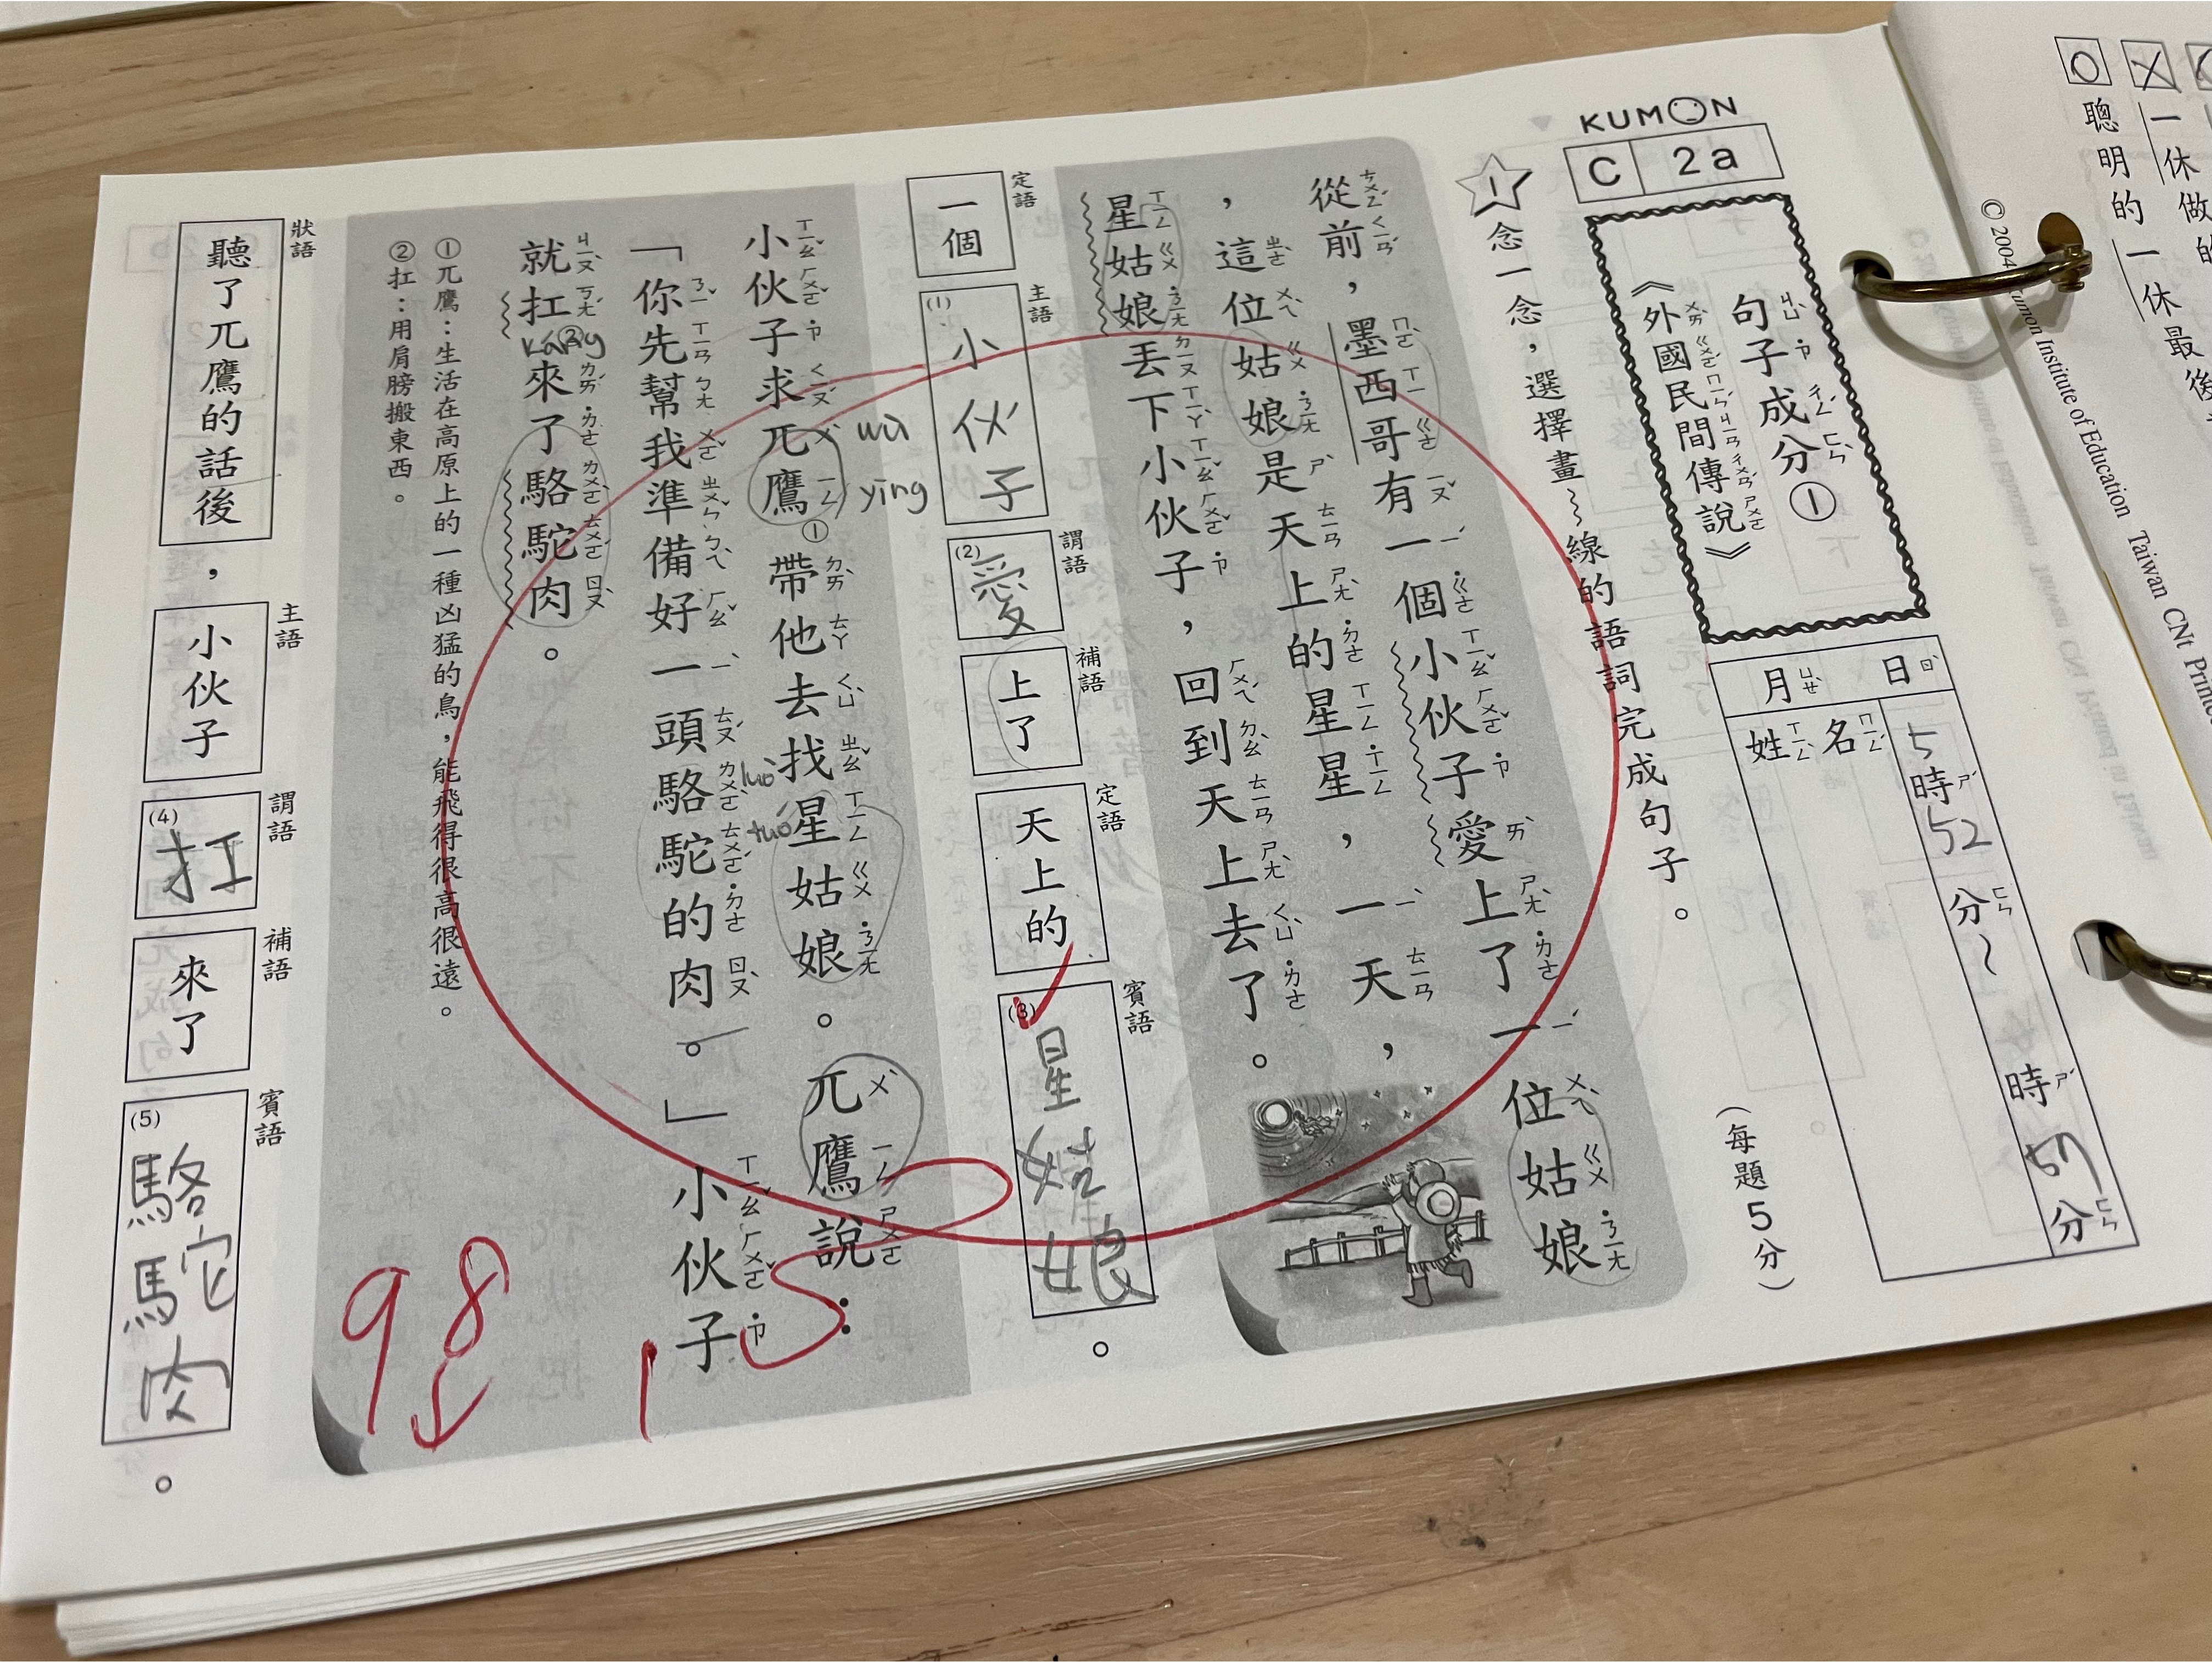 KUMON
C 2a
句子成分①
《外國民間傳說》
月 日
姓名
5時52分～ 時57分
(每題5分)
1 念一念，選擇畫～線的語詞完成句子。
從前，墨西哥有一個小伙子愛上了一位姑娘
，這位姑娘是天上的星星，一天，
星姑娘丟下小伙子，回到天上去了。
定語 主語 謂語 補語 定語 賓語
一個 (1)小伙子 (2)愛 上了 天上的 (3)星姑娘。
wù yīng
小伙子求兀鷹①帶他去找星姑娘。兀鷹說：
「你先幫我準備好一頭駱駝的肉。」小伙子
luò tuó
就扛②來了駱駝肉。
káng
①兀鷹：生活在高原上的一種凶猛的鳥，能飛得很高很遠。
②扛：用肩膀搬東西。
狀語 主語 謂語 補語 賓語
聽了兀鷹的話後，小伙子 (4)扛 來了 (5)駱駝肉。
98
聰明的一休
一休做的
一休最後